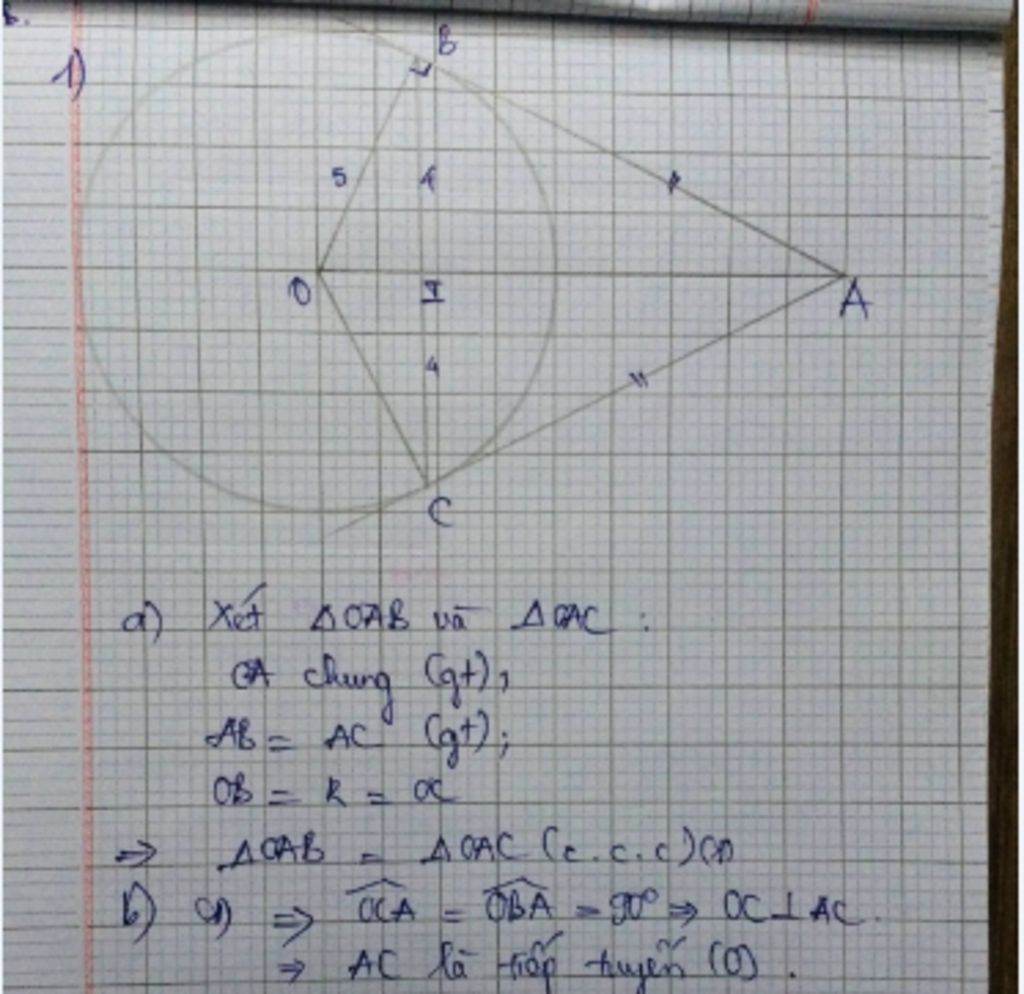 1)
B
5
4
O
I
A
4
C
a) Xét ΔOAB và ΔOAC :
OA chung (gt);
AB = AC (gt);
OB = R = OC
=> ΔOAB = ΔOAC (c.c.c) (1)
b) (1) => OCA = OBA = 90° => OC ⊥ AC.
=> AC là tiếp tuyến (O).